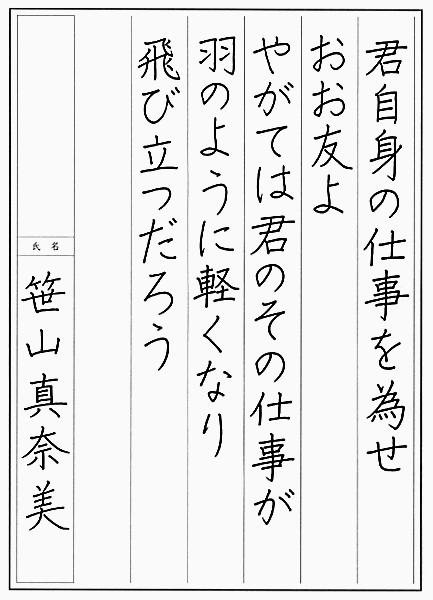 君自身の仕事を為せ
おお友よ
やがては君のその仕事が
羽のように軽くなり
飛び立つだろう
氏名
笹山真奈美